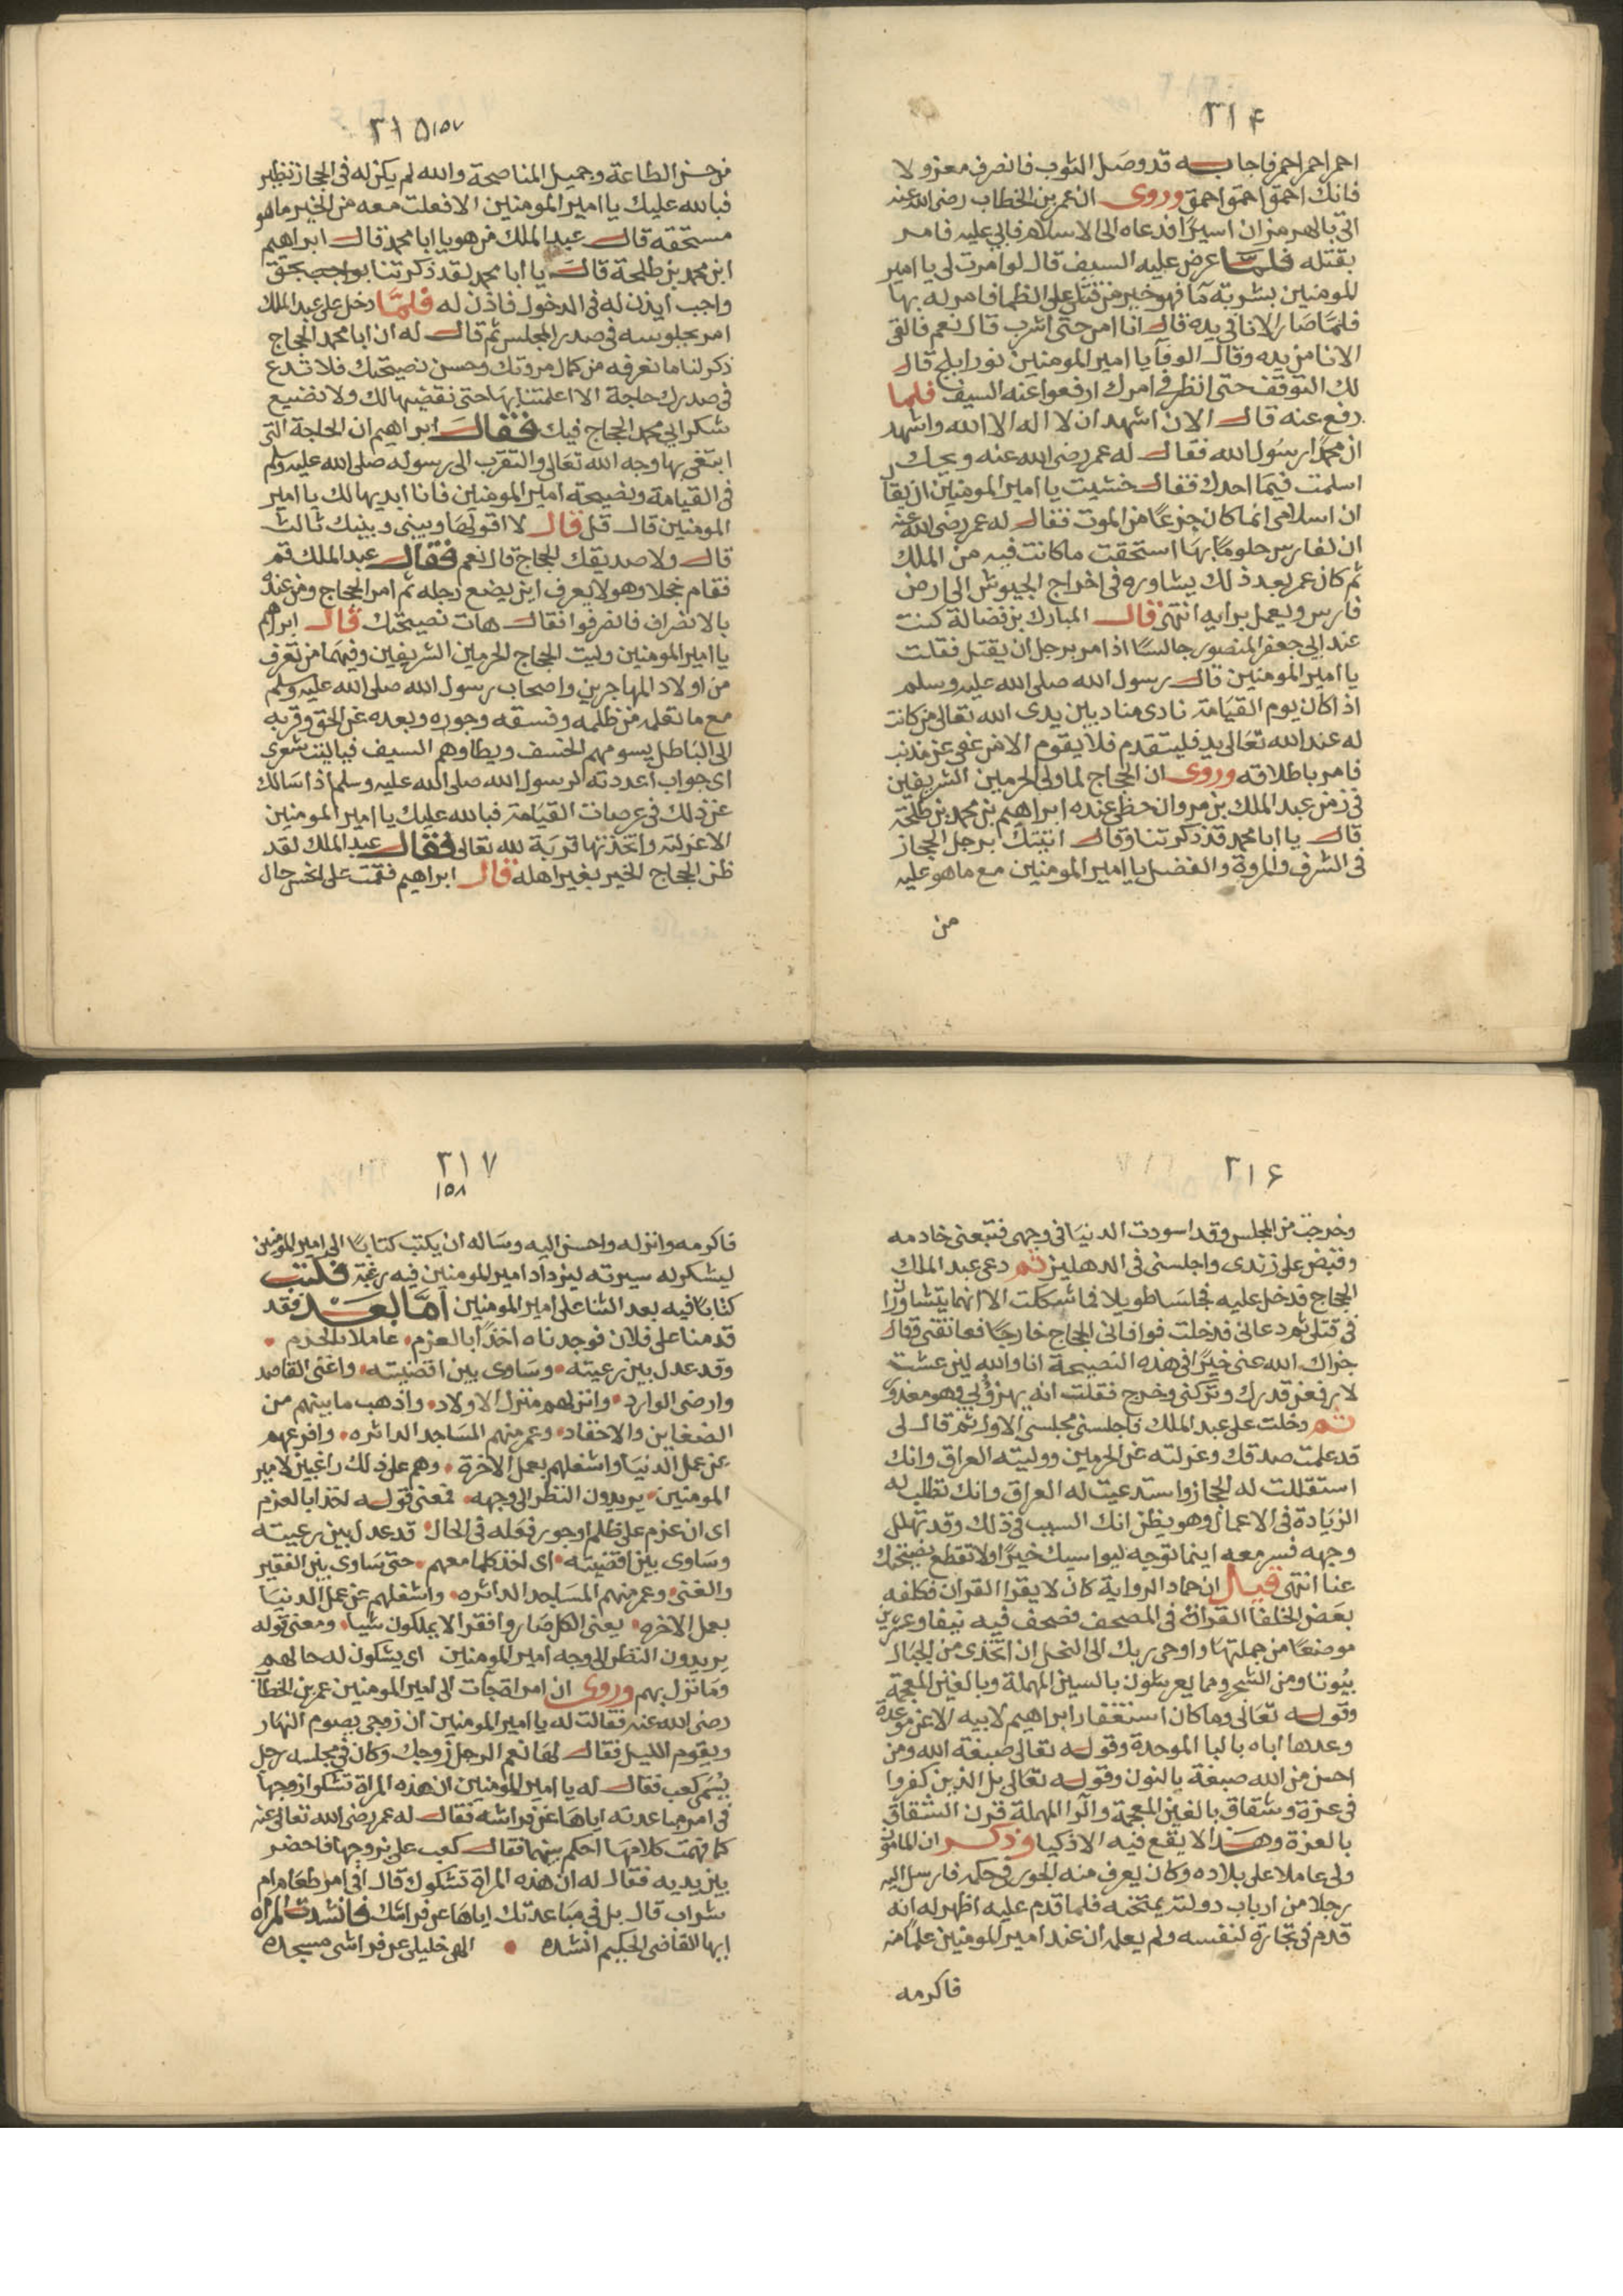 ٣١٤
احمر احمر احمر فاجابه قد وصل الثوب فانصرف معزولا
فانك احمق احمق احمق وروى ان عمر بن الخطاب رضى الله عنه
اتى بالهرمزان اسيرًا فدعاه الى الاسلام فابى عليه فامر
بقتله فلما عرض عليه السيف قال لو امرت لى يا امير
المومنين بشربة ما فهو خير من قتلى على الظما فامر له بها
فلما صار الانا فى يده قال انا امن حتى اشرب قال نعم فالقى
الانا من يده وقال الوفآ يا امير المومنين نور ابلج قال
لك التوقف حتى انظر فى امرك ارفعوا عنه السيف فلما
رفع عنه قال الان اشهد ان لا اله الا الله واشهد
ان محمدًا رسول الله فقال له عمر رضى الله عنه ويحك
اسلمت فيما اخرك فقال خشيت يا امير المومنين ان يقال
ان اسلامى انما كان جزعًا من الموت فقال له عمر رضى الله عنه
ان لفارس حلومًا بها استحقت ما كانت فيه من الملك
ثم كان عمر بعد ذلك يشاوره فى اخراج الجيوش الى ارض
فارس ويعمل برايه انتهى قال المبارك بن فضالة كنت
عند ابى جعفر المنصور جالسًا اذ امر برجل ان يقتل فقلت
يا امير المومنين قال رسول الله صلى الله عليه وسلم
اذا كان يوم القيامة نادى مناد بين يدى الله تعالى من كانت
له عند الله تعالى يد فليتقدم فلا يقوم الا من عفى عن مذنب
فامر باطلاقه وروى ان الحجاج لما ولى الحرمين الشريفين
فى زمن عبد الملك بن مروان حظى عنده ابراهيم بن محمد بن طلحة
قال يا ابا محمد قد ذكرتنا وقال اتيتك برجل الحجاز
فى الشرف والمروة والفضل يا امير المومنين مع ما هو عليه
من
٣١٥ ١٥٧
من حسن الطاعة وجميل المناصحة والله لم يكن له فى الحجاز نظير
فبالله عليك يا امير المومنين الا فعلت معه من الخير ما هو
مستحقه قال عبد الملك من هو يا ابا محمد قال ابراهيم
ابن محمد بن طلحة قال يا ابا محمد لقد ذكرتنا بواجب بحق
واجب ايذن له فى الدخول فاذن له فلما دخل على عبد الملك
امر بجلوسه فى صدر المجلس ثم قال له ان ابا محمد الحجاج
ذكر لنا ما نعرفه من كمال مروتك وحسن نصيحتك فلا تدع
فى صدرك حاجة الا اعلمتنا بها حتى نقضيها لك ولا نضيع
شكر ابى محمد الحجاج فيك فقال ابراهيم ان الحاجة التى
ابتغى بها وجه الله تعالى والتقرب الى رسوله صلى الله عليه وسلم
فى القيامة ونصيحة امير المومنين فانا ابديها لك يا امير
المومنين قال قل قال لا اقولها وبينى وبينك ثالث
قال ولا صديقك الحجاج قال نعم فقال عبد الملك قم
فقام خجلا وهو لا يعرف اين يضع رجله ثم امر الحجاج ومن عنده
بالانصراف فانصرفوا فقال هات نصيحتك قال ابراهيم
يا امير المومنين وليت الحجاج الحرمين الشريفين وفيهما من تعرف
من اولاد المهاجرين واصحاب رسول الله صلى الله عليه وسلم
مع ما تعلمه من ظلمه وفسقه وجوره وبعده عن الحق وقربه
الى الباطل يسومهم الخسف ويطاوهم السيف فياليت شعرى
اى جواب اعددته لرسول الله صلى الله عليه وسلم اذا سالك
عن ذلك فى عرصات القيامة فبالله عليك يا امير المومنين
الا عزلته واتخذتها قربة لله تعالى فقال عبد الملك لقد
ظن الحجاج الخير بغير اهله قال ابراهيم فقمت على اخس حال
٣١٦
وخرجت من المجلس وقد اسودت الدنيا فى وجهى فتبعنى خادمه
وقبض على زندى واجلسنى فى الدهليز ثم دعى عبد الملك
الحجاج فدخل عليه فجلسا طويلا فما شككت الا انهما يتشاوران
فى قتلى ثم دعانى فدخلت فوافانى الحجاج خارجًا فعانقنى وقال
جزاك الله عنى خيرًا فى هذه النصيحة انا والله لين عشت
لارفعن قدرك وتركنى وخرج فقلت انه يهزؤ بى وهو معذور
ثم دخلت على عبد الملك فاجلسنى مجلسى الاول ثم قال لى
قد علمت صدقك وعزلته عن الحرمين ووليته العراق وانك
استقللت له الحجاز واستدعيت له العراق وانك تطلب له
الزيادة فى الاعمال وهو يظن انك السبب فى ذلك وقد تهلل
وجهه فسر معه اينما توجه ليواسيك خيرًا ولا تقطع نصيحتك
عنا انتهى قيل ان حماد الرواية كان لا يقرا القران فكلفه
بعض الخلفا القراة فى المصحف فصحف فيه نيفا وعشرين
موضعًا من جملتها واوحى ربك الى النحل ان اتخذى من الجبال
بيوتا ومن الشجر ومما يعرشون بالسين المهملة وبالغين المعجمة
وقوله تعالى وما كان استغفار ابراهيم لابيه الا عن موعدة
وعدها اباه بالبا الموحدة وقوله تعالى صبغة الله ومن
احسن من الله صبغة بالنون وقوله تعالى بل الذين كفروا
فى عزة وشقاق بالغين المعجمة والرا المهملة قرن الشقاق
بالعزة وهذا لا يقع فيه الا ذكيا وذكر ان المامون
ولى عاملا على بلاده وكان يعرف منه الجور فى حكمه فارسل اليه
رجلا من ارباب دولته يمتحنه فلما قدم عليه اظهر له انه
قدم فى تجارة لنفسه ولم يعلمه ان عند امير المومنين علمًا منه
فاكرمه
٣١٧
١٥٨
فاكرمه وانزله واحسن اليه وساله ان يكتب كتابًا الى امير المومنين
ليشكر له سيرته ليزداد امير المومنين فيه رغبة فكتب
كتابًا فيه بعد الثنا على امير المومنين اما بعد فقد
قدمنا على فلان فوجدناه اخذًا بالعزم عاملا بالحزم
وقد عدل بين رعيته وساوى بين اقضيته واغنى القاصد
وارضى الوارد وانزلهم منزل الاولاد واذهب ما بينهم من
الضغاين والاحقاد وعمر منهم المساجد الداثره وافرغهم
عن عمل الدنيا واشغلهم بعمل الاخرة وهم على ذلك راغبين لامير
المومنين يريدون النظر الى وجهه فمعنى قوله اخذا بالعزم
اى ان عزم على ظلم او جور فعله فى الحال قد عدل بين رعيته
وساوى بين اقضيته اى اخذ كلما معهم حتى ساوى بين الفقير
والغنى وعمر منهم المساجد الداثره واشغلهم عن عمل الدنيا
بعمل الاخره يعنى الكل صاروا فقرا لا يملكون شيا ومعنى قوله
يريدون النظر الى وجه امير المومنين اى يشكون له حالهم
وما نزل بهم وروى ان امراة جات الى امير المومنين عمر بن الخطاب
رضى الله عنه فقالت له يا امير المومنين ان زوجى يصوم النهار
ويقوم الليل فقال لها نعم الرجل زوجك وكان فى مجلسه رجل
يسمى كعب فقال له يا امير المومنين ان هذه المراة تشكوا زوجها
فى امر مباعدته اياها عن فراشه فقال له عمر رضى الله تعالى عنه
كما فهمت كلامها احكم بينهما فقال كعب على بزوجها فاحضر
بين يديه فقال له ان هذه المراة تشكوك قال افى امر طعام ام
شراب قال بل فى مباعدتك اياها عن فراشك فانشدت المراه
ايها القاضى الحكيم انشده الهى خليلى عن فراشى مسجده